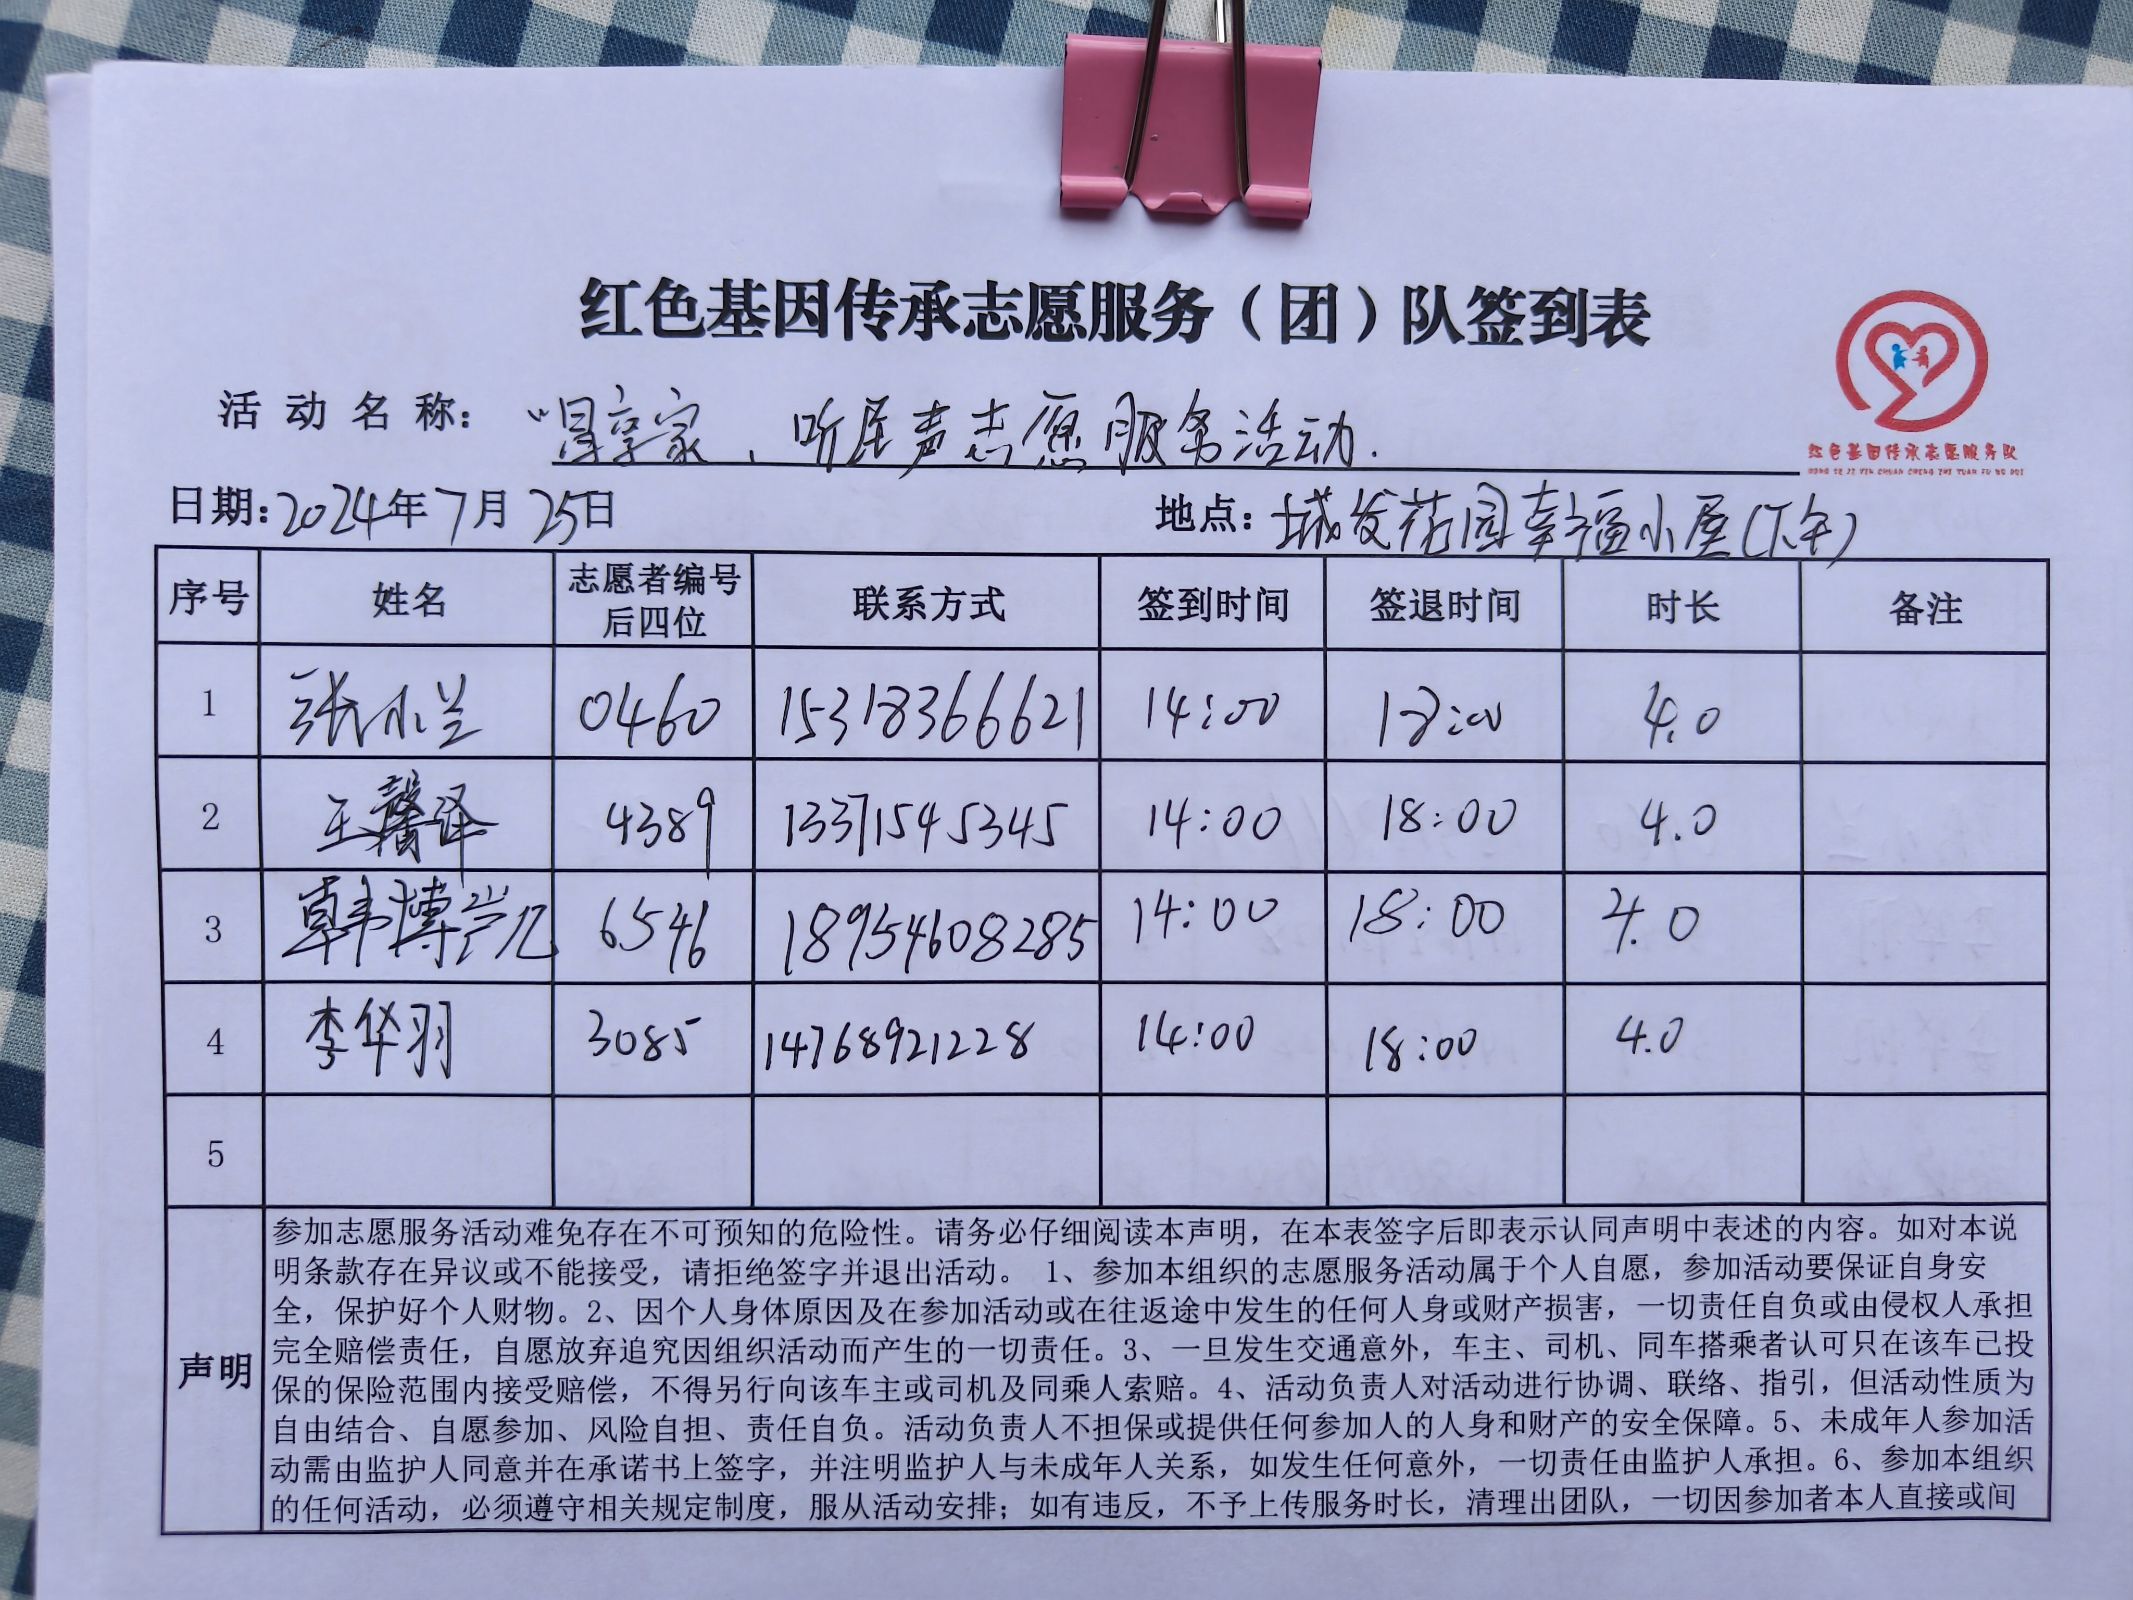 红色基因传承志愿服务（团）队签到表
活动名称：“冒享家、听居声志愿服务活动.
红色基因传承志愿服务队
HONG SE JI YIN CHUAN CHENG ZHI YUAN FU WU DUI
日期：2024年7月25日 地点：城发花园幸福小屋（下午）
序号 姓名 志愿者编号后四位 联系方式 签到时间 签退时间 时长 备注
1 张小兰 0460 15318366621 14:00 18:00 4.0
2 王馨译 4389 13371545345 14:00 18:00 4.0
3 韩博 6546 18954608285 14:00 18:00 4.0
4 李华羽 3085 14768921228 14:00 18:00 4.0
5
声明
参加志愿服务活动难免存在不可预知的危险性。请务必仔细阅读本声明，在本表签字后即表示认同声明中表述的内容。如对本说
明条款存在异议或不能接受，请拒绝签字并退出活动。 1、参加本组织的志愿服务活动属于个人自愿，参加活动要保证自身安
全，保护好个人财物。2、因个人身体原因及在参加活动或在往返途中发生的任何人身或财产损害，一切责任自负或由侵权人承担
完全赔偿责任，自愿放弃追究因组织活动而产生的一切责任。3、一旦发生交通意外，车主、司机、同车搭乘者认可只在该车已投
保的保险范围内接受赔偿，不得另行向该车主或司机及同乘人索赔。4、活动负责人对活动进行协调、联络、指引，但活动性质为
自由结合、自愿参加、风险自担、责任自负。活动负责人不担保或提供任何参加人的人身和财产的安全保障。5、未成年人参加活
动需由监护人同意并在承诺书上签字，并注明监护人与未成年人关系，如发生任何意外，一切责任由监护人承担。6、参加本组织
的任何活动，必须遵守相关规定制度，服从活动安排；如有违反，不予上传服务时长，清理出团队，一切因参加者本人直接或间